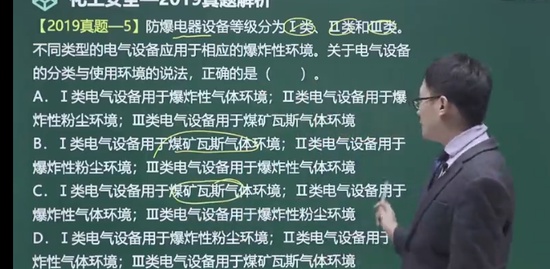 化工安全—2019真题解析
【2019真题—5】防爆电器设备等级分为Ⅰ类、Ⅱ类和Ⅲ类。
不同类型的电气设备应用于相应的爆炸性环境。关于电气设备
的分类与使用环境的说法，正确的是（ ）。
A．Ⅰ类电气设备用于爆炸性气体环境；Ⅱ类电气设备用于爆
炸性粉尘环境；Ⅲ类电气设备用于煤矿瓦斯气体环境
B．Ⅰ类电气设备用于煤矿瓦斯气体环境；Ⅱ类电气设备用于
爆炸性粉尘环境；Ⅲ类电气设备用于爆炸性气体环境
C．Ⅰ类电气设备用于煤矿瓦斯气体环境；Ⅱ类电气设备用于
爆炸性气体环境；Ⅲ类电气设备用于爆炸性粉尘环境
D．Ⅰ类电气设备用于爆炸性粉尘环境；Ⅱ类电气设备用于
炸性气体环境；Ⅲ类电气设备用于煤矿瓦斯气体环境